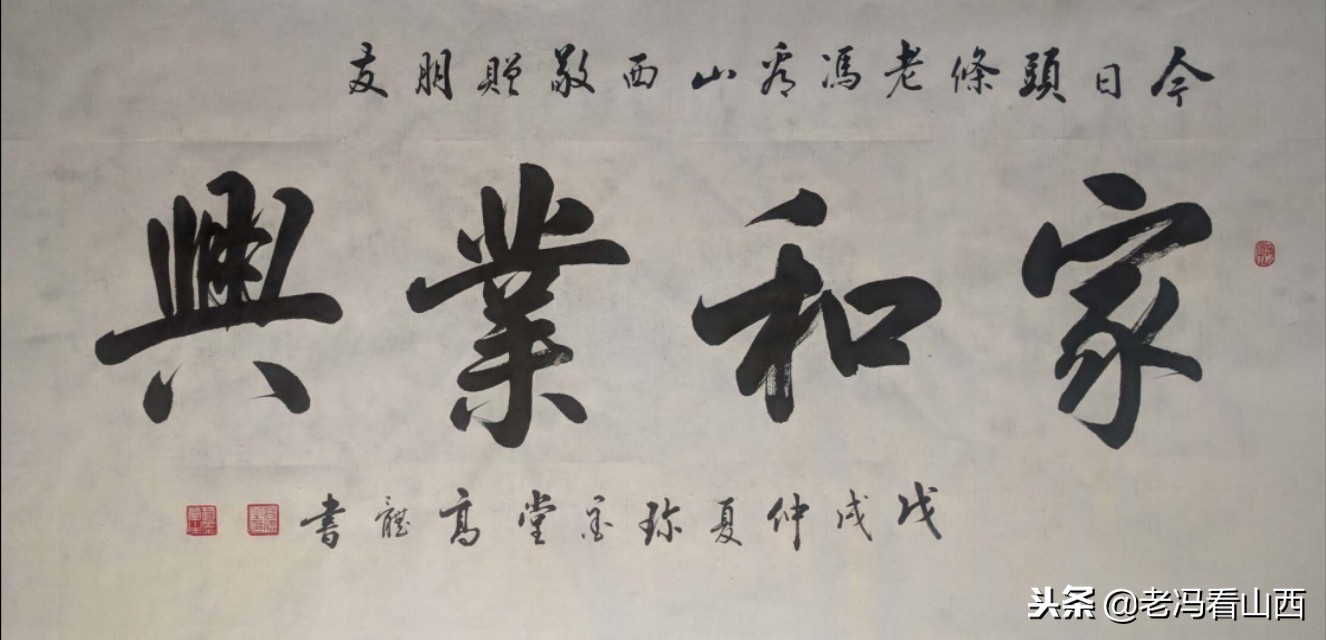 今日頭條老馮看山西敬贈朋友
家和業興
戊戌仲夏珍宝堂高龍書
头条 @老冯看山西